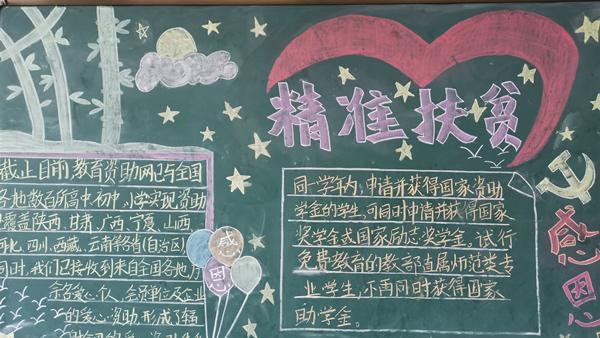 精准扶贫
截止目前,教育资助网已与全国
各地数百所高中、初中、小学实现资助
覆盖陕西、甘肃、广西、宁夏、山西
河北、四川、西藏、云南等省(自治区)
同时,我们已接收到来自全国各地万
余名爱心人、会员单位及企业
的爱心资助,形成了福
感
恩
同一学年内,申请并获得国家资助
学金的学生,可同时申请并获得国家
奖学金或国家励志奖学金。试行
免费教育的教部直属师范类专
业学生,不再同时获得国家
助学金。
感恩